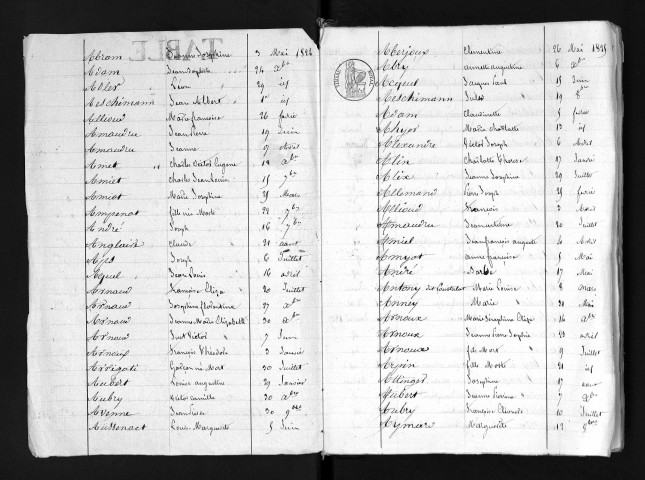 Abram Jeanne Josephine 3 Mai 1824
Adam Jean Baptiste 24 8bre
Adler Léon 29 id
Aeschimann Jean Albert 1er id
Allioud Marie françoise 26 fevrier
Amaudru Jean Pierre 19 Juin
Amaudru Jeanne 9 Avril
Amet Charles Victor Eugene 12 8bre
Amiet Charles Jean Louis 15 7bre
Amiot Marie Josephine 31 Mars
Ampenot fille née Morte 22 7bre
André Joseph 16 7bre
Anglaire Claude 21 aout
Joseph 6 Juillet
Jean Louis 16 avril
Arnaud Françoise Eliza 20 Juillet
Arnaud Josephine florentine 27 8bre
Arnaud Jeanne Marie Elizabeth 30 8bre
Arnaud Just Victor 7 Juin
François Théodore 3 Janvier
Garçon né Mort 30 Juillet
Aubert Louise augustine 29 Janvier
Aubry Victor camille 30 8bre
Avenne Jean 30 9bre
Louise Marguerite 5 Juin
TABLE
Clementine 26 Mai 1825
Abry annette augustine 6 8bre
Jacques Paul 15 Juin
Aeschimann Jules 19 8bre
Adam Claudinette 5 fevrier
Marie charlotte 13 id
Alexandre Victor Joseph 6 Avril
Alin Charlotte Therese 17 Janvier
Alix Jeanne Josephine 29 Juillet
Allemand Pierre Joseph 25 fevrier
Allioud François 3 Mars
Amaudru Jean antoine 20 Juillet
Amiel Jean françois auguste 4 Avril
Amyot anne françoise 5 Mai
André Barbe 17 Mai
Antony Marie Louise 8 Mars
Anney Marie 30 Mai
Arnoux Marie Séraphine Eliza 16 8bre
Arnoux Jeanne Pierre Sophie 23 avril
Arnoux fils Mort 9 Juillet
Arpin fille Morte 21 id
Attinger Josephine 17 aout
Aubert Jeanne 7 8bre
Aubry François 10 Juillet
Aymard Marguerite 12 9bre